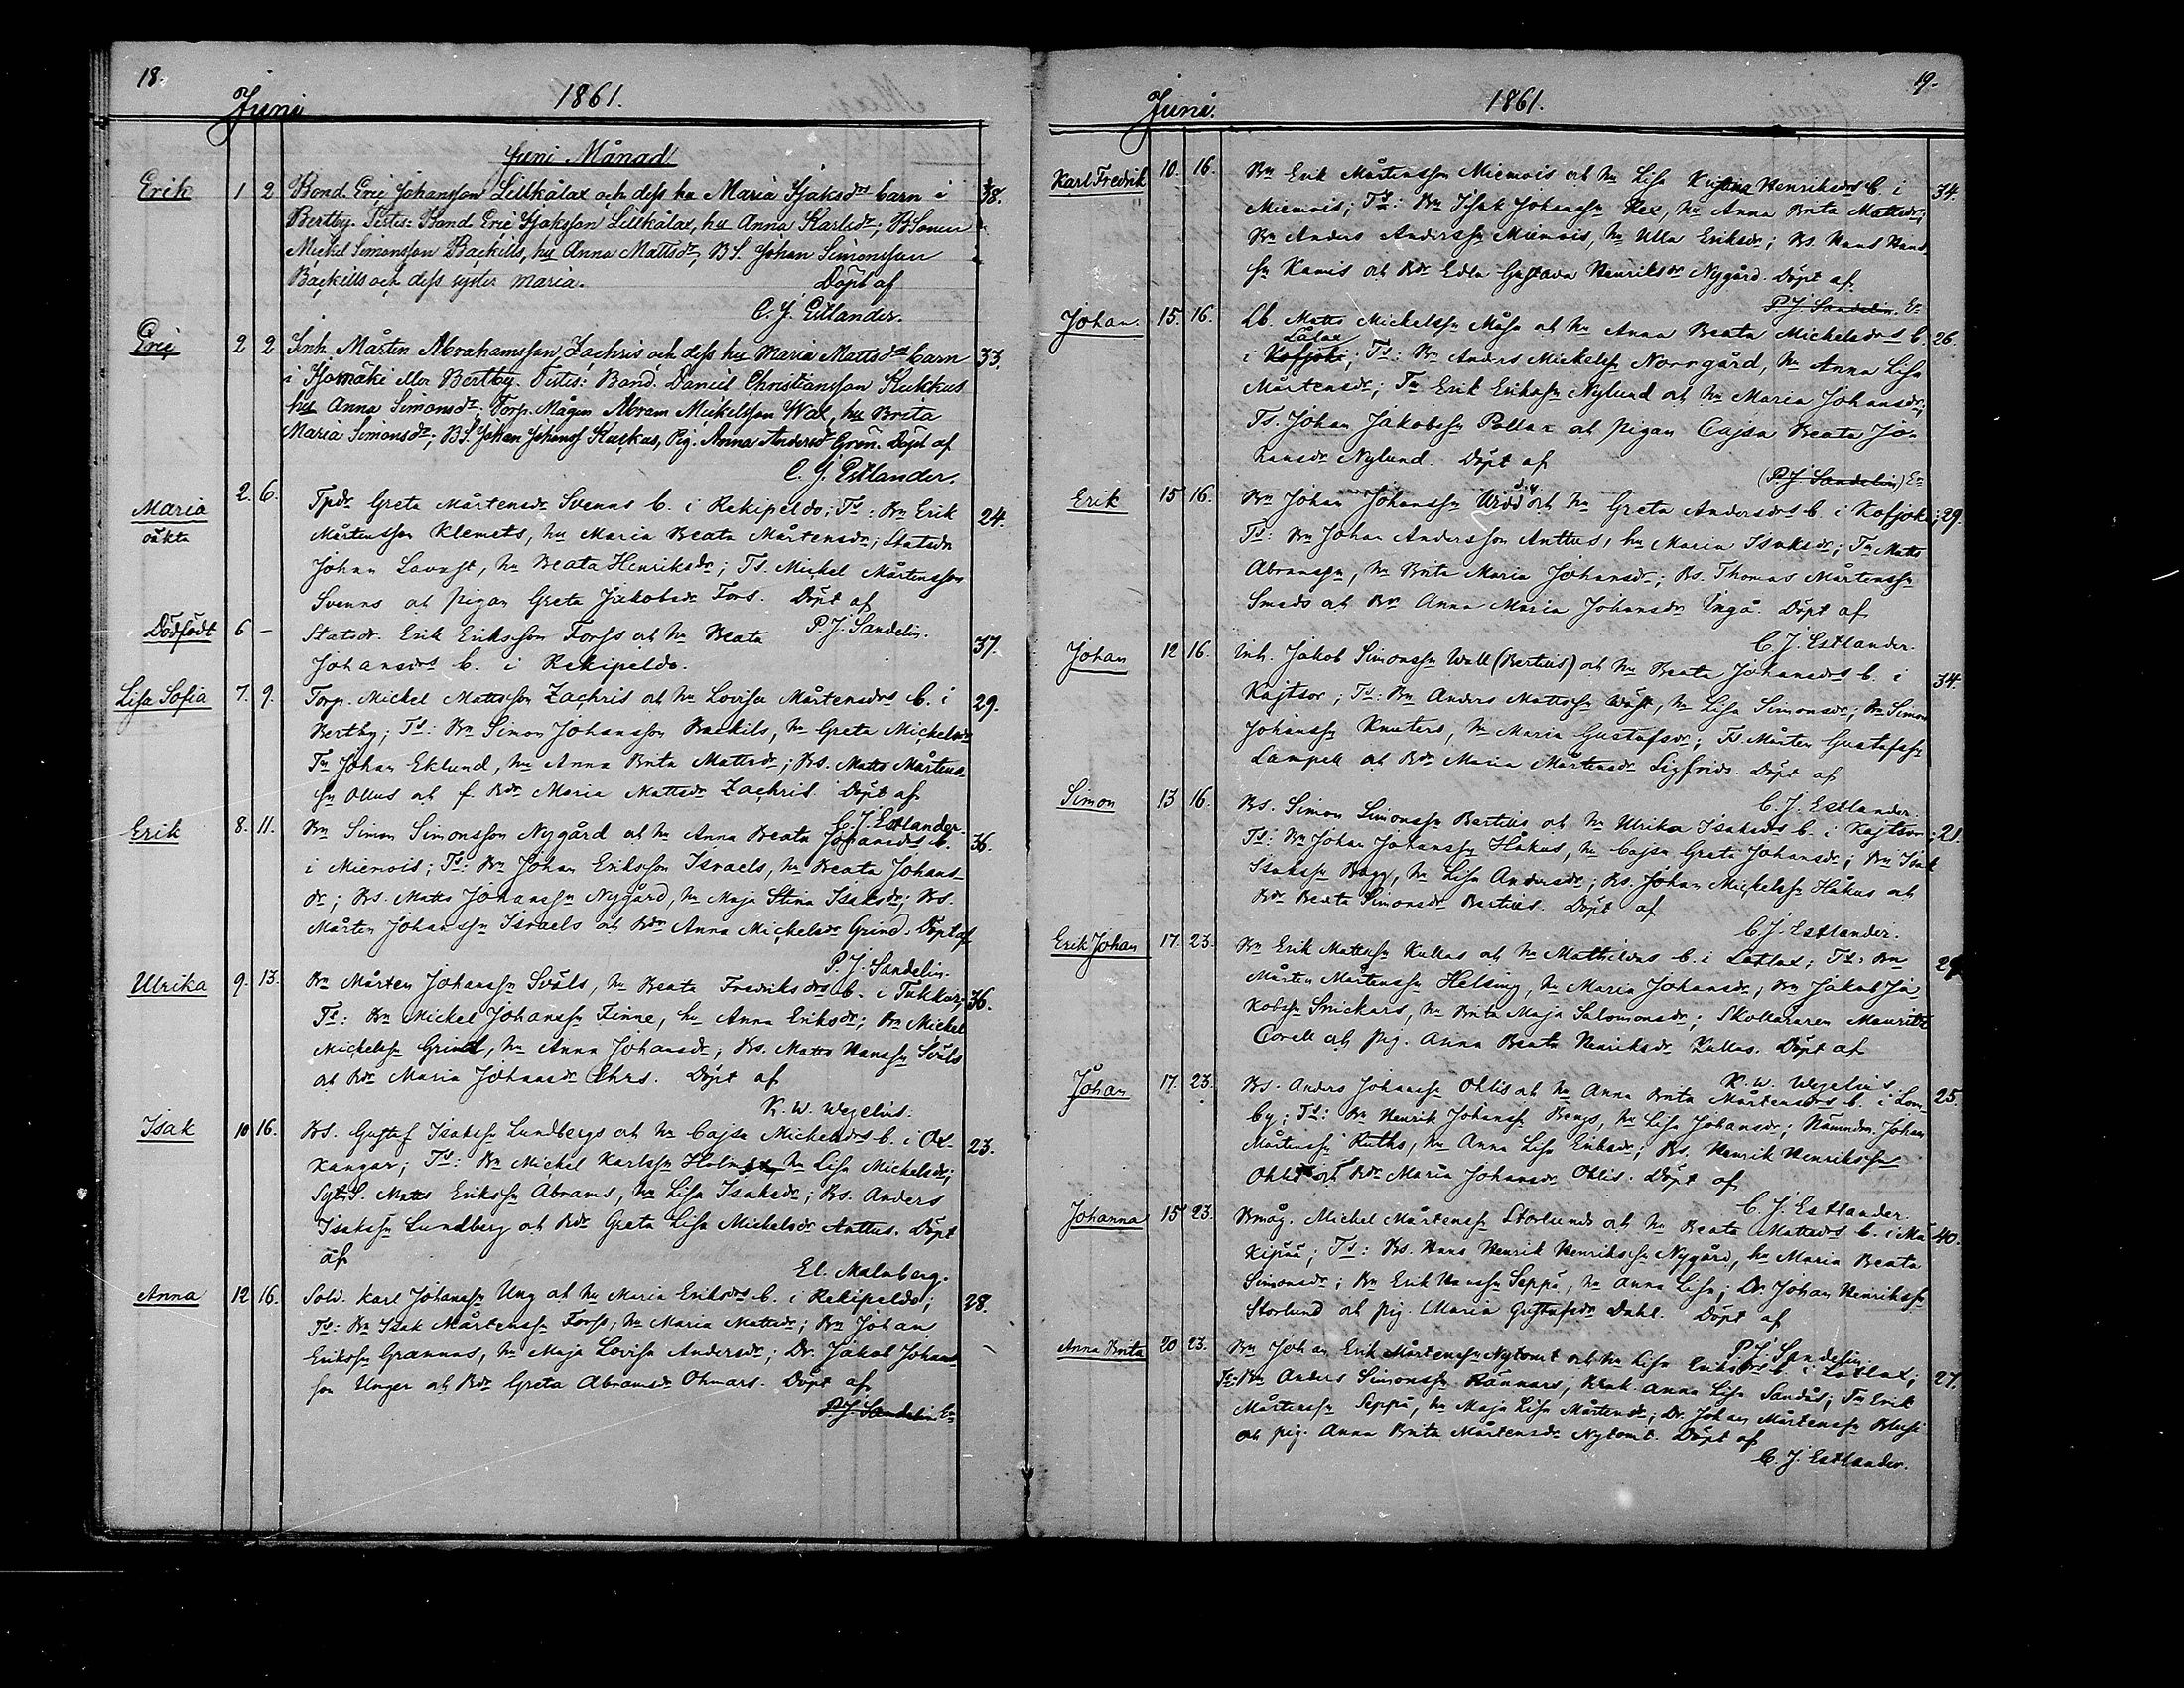 18.
Juni 1861.
Juni Månad
Erik 1 2 Bond. Eric Johansson Lillkålax och dess hu Maria Isaksdrs barn i 38.
Bertby. Testis: Bond. Eric Isaksson Lillkålax, hu Anna Karlsdr; BSonen
Mickel Simonsson Backills, hu Anna Mattsdr, BS. Johan Simonsson
Backills och dess syster Maria. Döpt af
C. J. Estlander.
Eric 2 2 Inh. Mårten Abrahamsson Zachris och dess hu Maria Mattsdrs barn 33.
i Isomäki eller Bertby. Testis: Bond. Daniel Christiansson Kukkus
hu Anna Simonsdr; Torp. Mågen Abram Mickelsson Wax, hu Brita
Maria Simonsdr; BS. Johan Johanss Kuckus, Pig. Anna Andersdr Grön. Döpt af
C. J. Estlander.
Maria 2. 6. Tpdr Greta Mårtensdr Svenns b. i Rekipeldo; Ts: Bn Erik 24.
oäkta Mårtensson Klemets, hu Maria Beata Mårtensdr; Statsdr
Johan Lavast, hu Beata Henriksdr; Ts. Mickel Mårtensson
Svenns och pigan Greta Jakobsdr Fors. Döpt af
P. J. Sandelin.
Dödfödt 6 – Statsdr. Erik Eriksson Forss och hu Beata 37.
Johansdrs b. i Rekipeldo.
Lisa Sofia 7. 9. Torp. Mickel Mattsson Zachris och hu Lovisa Mårtensdrs b. i 29.
Bertby; Ts: Bn Simon Johansson Backils, hu Greta Mickelsdr
Tn Johan Eklund, hu Anna Brita Mattsdr; Bs. Matts Mårtens-
sn Ollus och f. Bdr Maria Mattsdr Zachris. Döpt af
C. J. Estlander.
Erik 8. 11. Bn Simon Simonsson Nygård och hu Anna Beata Johansdrs b. 36.
i Miemois; Ts: Bn Johan Eriksson Israels, hu Beata Johans-
dr; Bs. Matts Johanssn Nygård, hu Maja Stina Isaksdr; Bs.
Mårten Johanssn Israels och Bdr Anna Mickelsdr Grind. Döpt af
P. J. Sandelin.
Ulrika 9. 13. Bn Mårten Johanssn Svals, hu Beata Fredriksdrs b. i Tukkur; 36.
Ts: Bn Mickel Johanssn Finne, hu Anna Eriksdr; Bn Mickel
Mickelssn Grind, hu Anna Johansdr; Bs. Matts Hanssn Svals
och Bdr Maria Johansdr Ehrs. Döpt af
K. W. Wegelius.
Isak 10 16. Bs. Gustaf Isakssn Lundbergs och hu Cajsa Mickelsdrs b. i Ox- 23.
kangar; Ts: Bn Mickel Karlssn Holm hu Lisa Mickelsdr;
Matts Erikssn Abrams, hu Lisa Isaksdr; Bs. Anders
Isakssn Lundberg och Bdr Greta Lisa Mickelsdr Anttus. Döpt
af
El. Malmberg.
Anna 12 16. Sold. Karl Johanssn Ung och hu Maria Eriksdrs b. i Rekipeldo; 28.
Ts: Bn Isak Mårtenssn Forss, hu Maria Mattsdr; Bn Johan
Erikssn Grannas, hu Maja Lovisa Andersdr; Dr. Jakob Johans-
son Unger och Bdr Greta Abramsdr Ohmars. Döpt af
P. J. Sandelin. En
19.
Juni. 1861.
Karl Fredrik 10. 16. Bn Erik Mårtensson Miemois och hu Lisa Kristina Henriksdrs b. i 34.
Miemois; Ts: Bn Isak Johanssn Rex, hu Anna Brita Mattsdr;
Bn Anders Anderssn Miemois, hu Ulla Eriksdr; Bs. Hans Hans-
sn Kamis och Bdr Edla Gustava Henriksdr Nygård. Döpt af
P. J. Sandelin. En
Johan. 15. 16. Lb. Matts Mickelssn Måsa och hu Anna Beata Mickelsdrs b. 26.
Lålax
i Kofjoki; Ts: Bn Anders Mickelssn Norrgård, hu Anna Lisa
Mårtensdr; Tn Erik Erikssn Nylund och hu Maria Johansdr;
Ts. Johan Jakobssn Pollar och pigan Cajsa Beata Jo-
hansdr Nylund. Döpt af
(P. J. Sandelin) En
Erik 15 16. Bn Johan Johanssn Widd och hu Greta Andersdrs b. i Kofjoki; 29.
Ts: Bn Johan Andersson Anttus, hu Maria Isaksdr; Tn Matts
Abramssn, hu Brita Maria Johansdr; Bs. Thomas Mårtenssn
Smeds och Bdr Anna Maria Johansdr Ingo. Döpt af
C. J. Estlander.
Johan 12 16. Inh. Jakob Simonssn Wall (Bertills) och hu Beata Johansdrs b. i 34.
Kajtsor; Ts: Bn Anders Mattssn Wäst, hu Lisa Simonsdr; Bn Simon
Johanssn Knuters, hu Maria Gustafsdr; Ts. Mårten Gustafssn
Lampell och Bdr Maria Mårtensdr Sigfrids. Döpt af
C. J. Estlander.
Simon 13 16. Bs. Simon Simonssn Bertills och hu Ulrika Isaksdrs b. i Kajtsor; 21.
Ts: Bn Johan Johanssn Håkus, hu Cajsa Greta Johansdr; Bn Isak
Isakssn Bagg, hu Lisa Andersdr; Bs. Johan Mickelssn Håkus och
Bdr Beata Simonsdr Bertills. Döpt af
C. J. Estlander.
Erik Johan 17. 23. Bn Erik Mattssn Kullas och hu Mathildas b. i Lotlax; Ts: Bn 29
Mårten Mårtenssn Helsing, hu Maria Johansdr; Bn Jakob Ja-
kobssn Snickars, hu Brita Maja Salomonsdr; Skolläraren Mauritz
Corell och pig. Anna Beata Henriksdr Kullas. Döpt af
K. W. Wegelius.
Johan 17. 23. Bs. Anders Johanssn Ohlis och hu Anna Brita Mårtensdrs b. i Lom- 25.
by; Ts: Bn Henrik Johanssn Bengs, hu Lisa Johansdr; Nämndm. Johan
Mårtenssn Ruths, hu Anna Lisa Eriksdr; Bs. Henrik Henrikssn
Ohlis och Bdr Maria Johansdr Ohlis. Döpt af
C. J. Estlander.
Johanna 15 23. Bmåg. Mickel Mårtenssn Storlunds och hu Beata Mattsdrs b. i Ma- 40.
kipää; Ts: Bs. Hans Henrik Henrikssn Nygård, hu Maria Beata
Simonsdr; Bn Erik Hanssn Seppä, hu Anna Lisa; Dr. Johan Henrikssn
Storlund och pig. Maria Gustafsdr Dahl. Döpt af
P. J. Sandelin.
Anna Brita 20 23. Bn Johan Erik Mårtenssn Nytomt och hu Lisa Eriksdrs b. i Lotlax; 27.
Ts: Bn Anders Simonssn Rannars, Anna Lisa Sandås; Tn Erik
Mårtenssn Seppä, hu Maja Lisa Mårtensdr; Dr. Johan Mårtenssn
och pig. Anna Brita Mårtensdr Nytomt. Döpt af
C. J. Estlander.